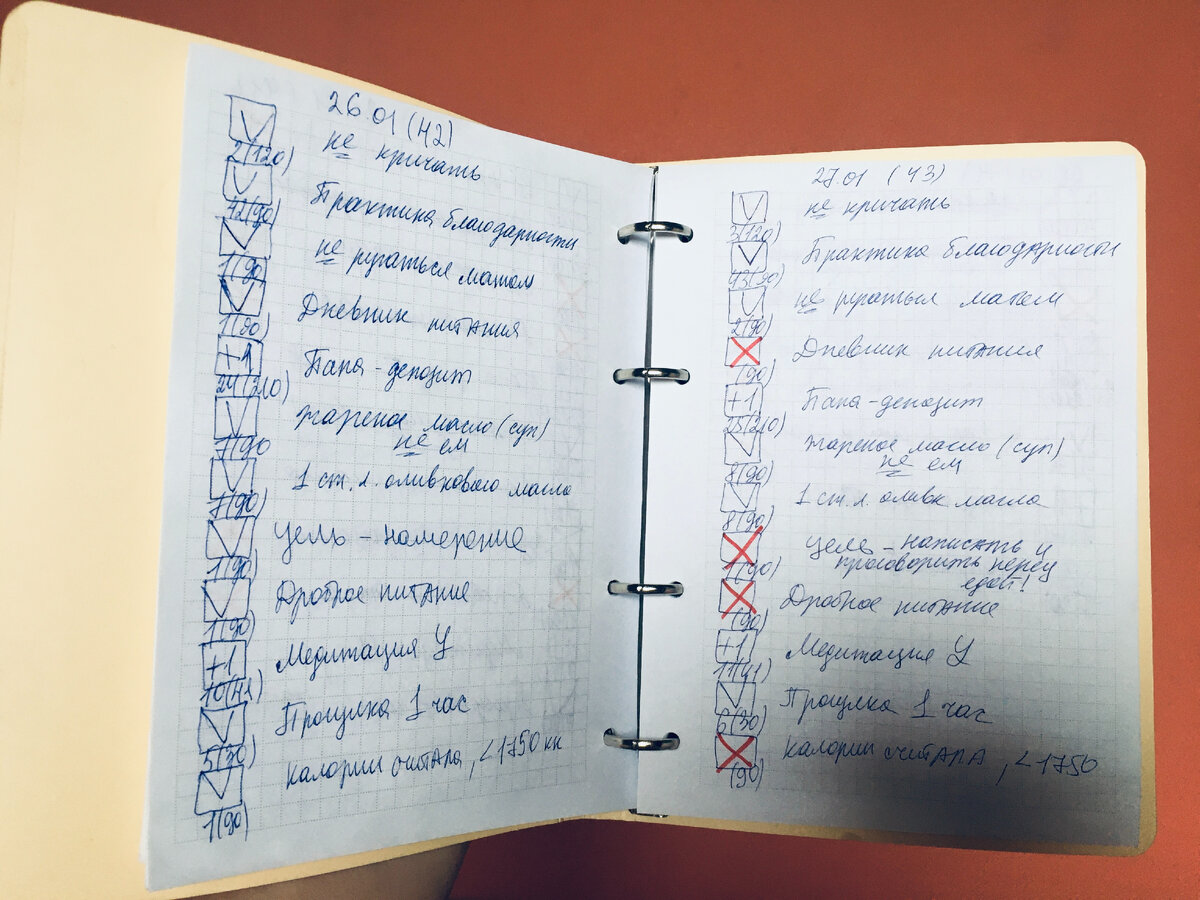 26.01 (42)
V не кричать
2(120)
V Практика благодарности
42(90)
V не ругаться матом
1(90)
V Дневник питания
1(90)
+1 Папа-депозит
24(210)
V жареное масло (суп)
не ем
7(90)
V 1 ст. л. оливкового масла
7(90)
V Цель - намерение
1(90)
V Дробное питание
1(90)
+1 Медитация У
10(41)
V Прогулка 1 час
5(30)
V калории считала, <1750 кк
1(90)
27.01 (43)
V не кричать
3(120)
V Практика благодарности
43(90)
V не ругаться матом
2(90)
X Дневник питания
(90)
+1 Папа-депозит
25(210)
V жареное масло (суп)
не ем
8(90)
V 1 ст. л. оливк масла
8(90)
X Цель - написать и
проговорить перед
едой!
1(90)
X Дробное питание
(90)
+1 Медитация У
11(41)
V Прогулка 1 час
6(30)
X калории считала, <1750
(90)